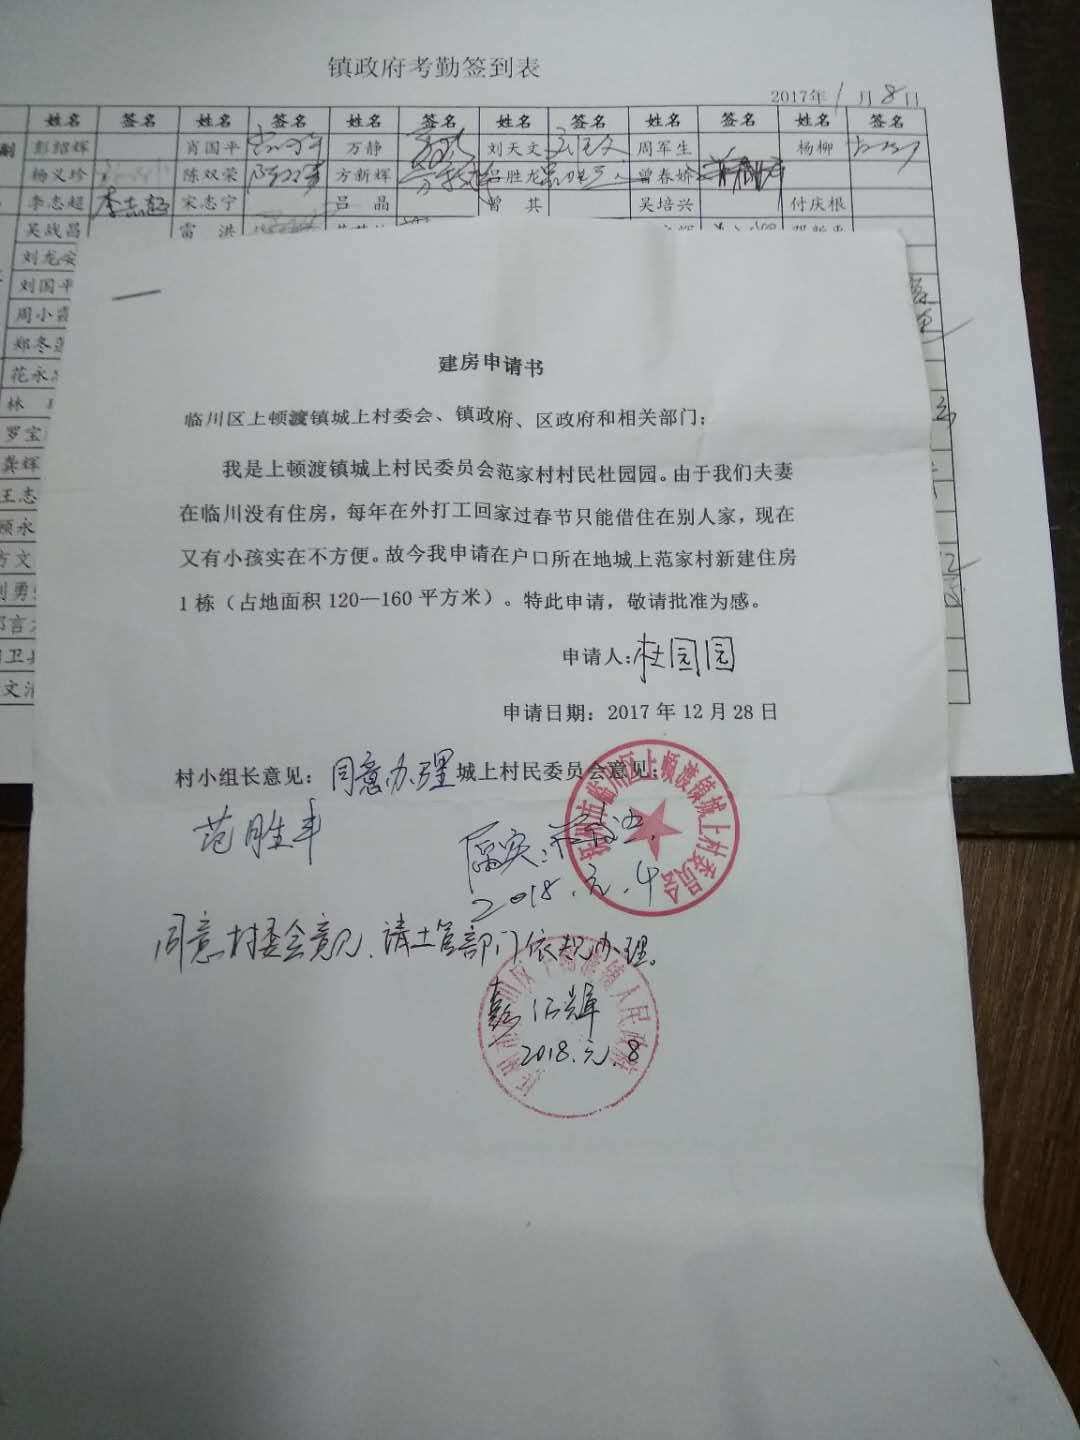 镇政府考勤签到表
2017年1月8日
姓名 签名 姓名 签名 姓名 签名 姓名 签名 姓名 签名 姓名 签名
彭绍辉 肖国平 万静 刘天文 周军生 杨柳
杨义珍 陈双荣 方新辉 吕胜龙 曾春娇
李志超 李志超 宋志宁 吕晶 曾其 吴培兴 付庆根
吴战昌 雷洪
刘龙安
刘国平
周小
郑冬
花永
林
罗宝
龚辉
王志
顾永
方文
刘勇
邓言
卫
文
建房申请书
临川区上顿渡镇城上村委会、镇政府、区政府和相关部门：
我是上顿渡镇城上村民委员会范家村村民杜园园。由于我们夫妻
在临川没有住房，每年在外打工回家过春节只能借住在别人家，现在
又有小孩实在不方便。故今我申请在户口所在地城上范家村新建住房
1栋（占地面积120—160平方米）。特此申请，敬请批准为感。
申请人：杜园园
申请日期：2017年12月28日
村小组长意见：同意办理 城上村民委员会意见：
范胜丰
属实：
2018.元.4
抚州市临川区上顿渡镇城上村委员会
同意村委会意见，请土管部门依规办理。
彭绍辉
2018.元.8
抚州市临川区上顿渡镇人民政府